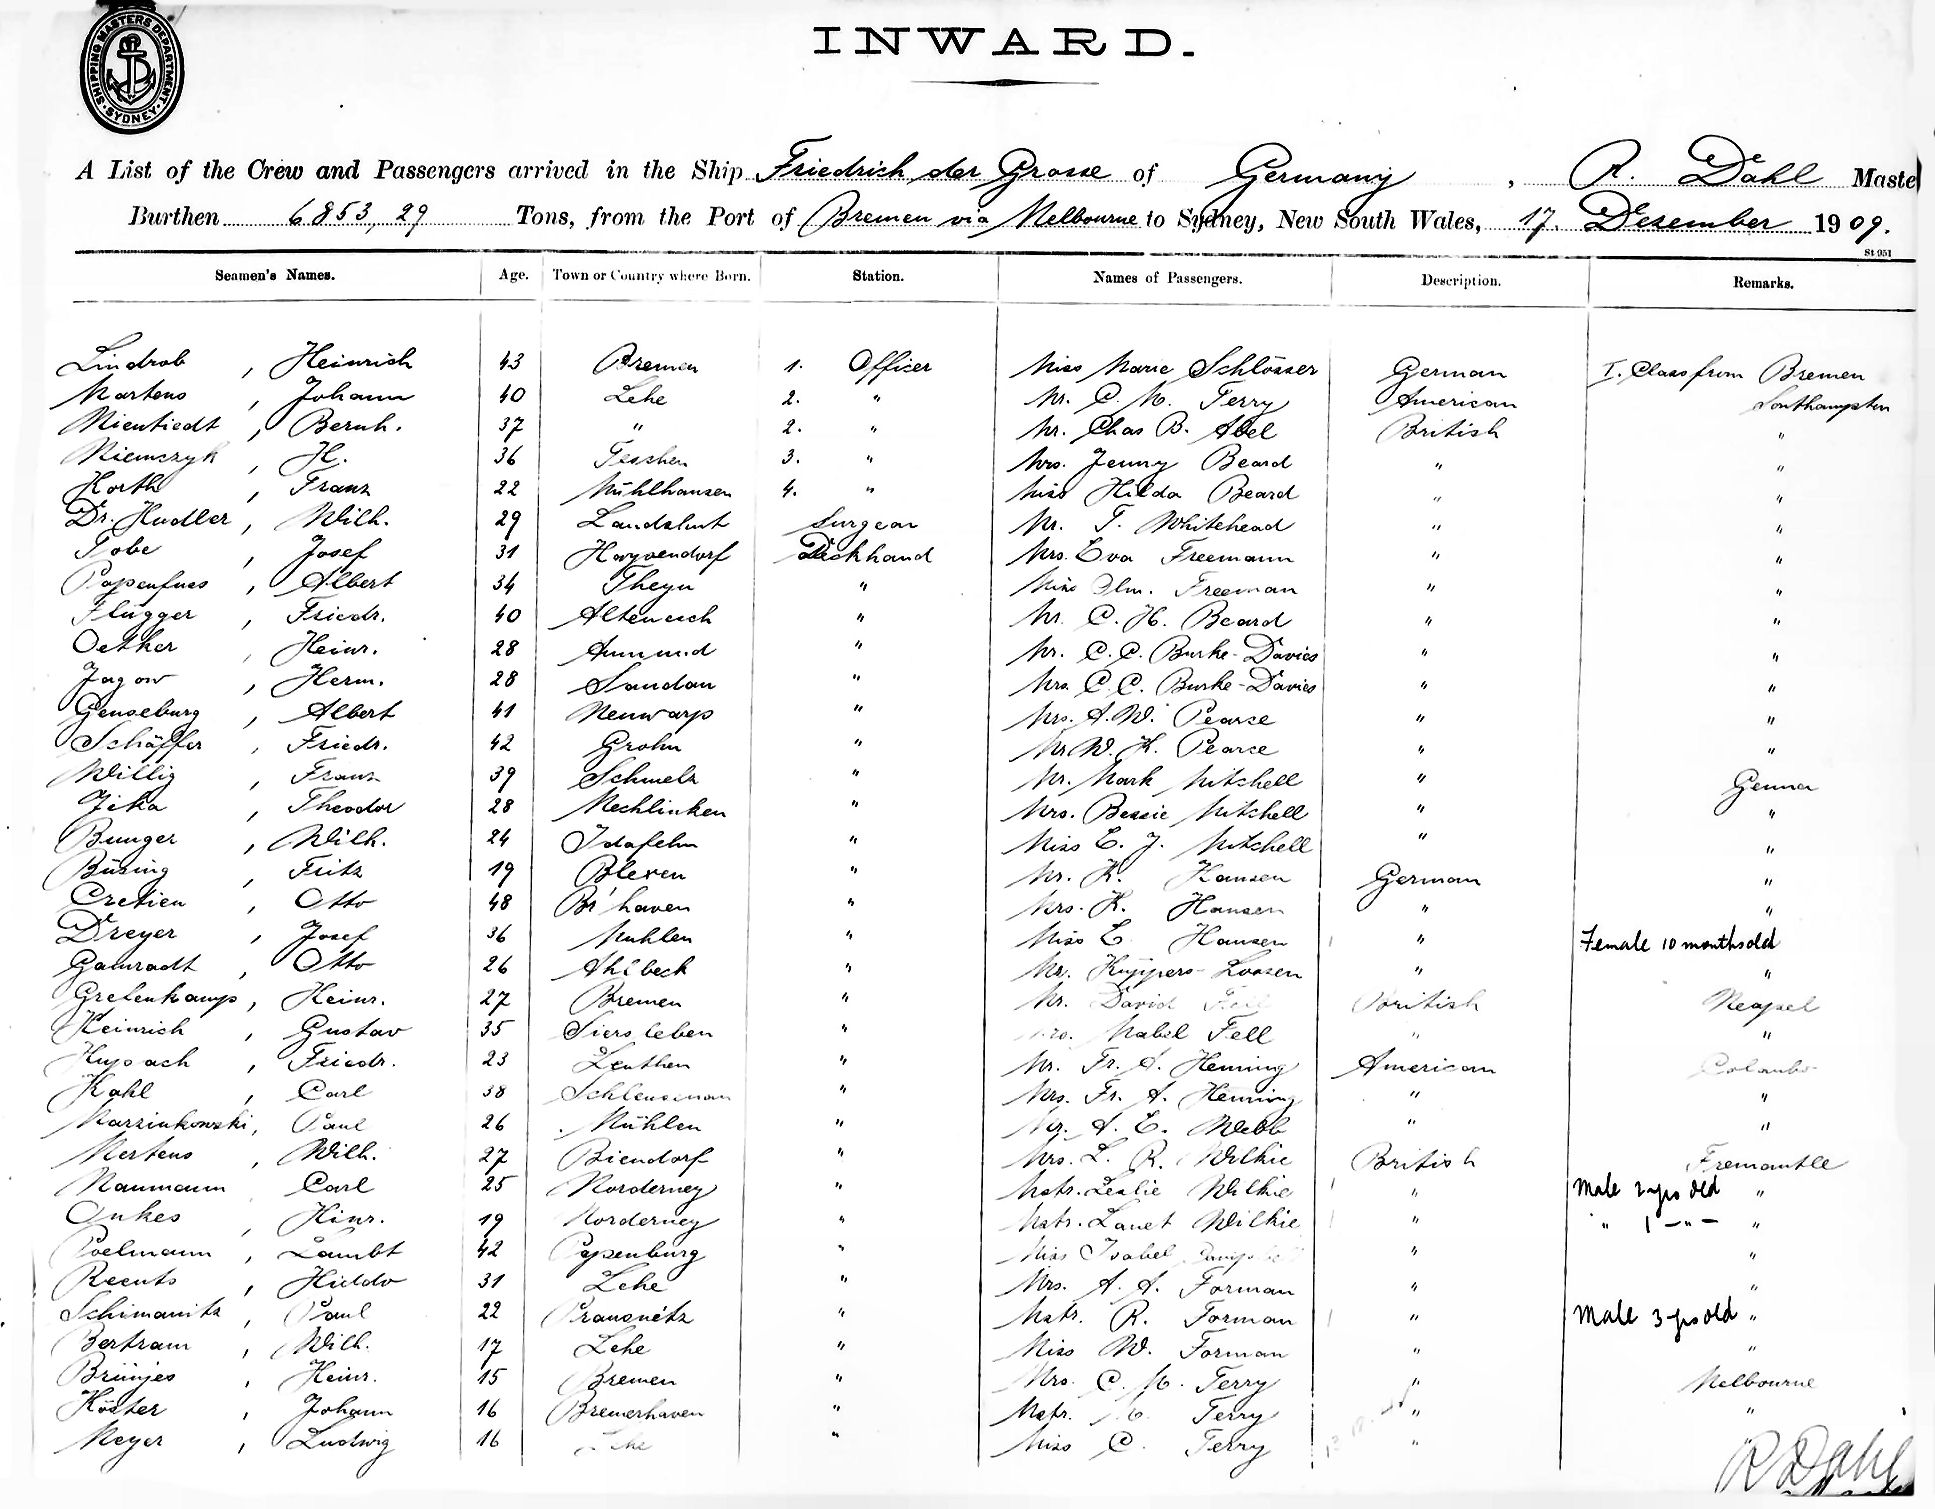 SHIPPING MASTERS DEPARTMENT SYDNEY
INWARD.
A List of the Crew and Passengers arrived in the Ship Friedrich der Grosse of Germany, R. Dahl Maste
Burthen 6853,29 Tons, from the Port of Bremen via Melbourne to Sydney, New South Wales, 17. Desember 1909.
St 951
Seamen's Names. Age. Town or Country where Born. Station. Names of Passengers. Description. Remarks.
Lindrob, Heinrich 43 Bremen 1. Officer Miss Marie Schlösser German I. Class from Bremen
Martens, Johann 40 Lehe 2. " Mr. C. M. Terry American Southampton
Mientiedt, Bernh. 37 " 2. " Mr. Chas B. Abel British "
Niemczyk, H. 36 Teschen 3. " Mrs. Jenny Beard " "
Horth, Franz 22 Mühlhausen 4. " Miss Hilda Beard " "
Dr. Hudler, Wilh. 29 Landshut Surgeon Mr. T. Whitehead " "
Tobe, Josef 31 Deckhand Mrs. Eva Freemann " "
Papenfues, Albert 34 Theyn " Miss Freeman " "
Flügger, Friedr. 40 Altenesch " Mr. C. H. Beard " "
Oetker, Heinr. 28 Aumund " Mr. C. C. Burke-Davies " "
Jagow, Herm. 28 Sandau " Mrs. C. C. Burke-Davies " "
Genseburg, Albert 41 Neuwarp " Mrs. A. W. Pearse " "
Schäffer, Friedr. 42 Grohn " Mr W. K. Pearse " "
Willig, Franz 39 Schmelz " Mr. Mark Mitchell " Genua
Jika, Theodor 28 Mechlinken " Mrs. Bessie Mitchell " "
Bunger, Wilh. 24 Idafehn " Miss E. J. Mitchell " "
Büsing, Fritz 19 Blexen " Mr. K. Hansen German "
Cretien, Otto 48 Br'haven " Mrs. K. Hansen " "
Dreyer, Josef 36 Muhlen " Miss E. Hansen " Female 10 months old
Gamradt, Otto 26 Ahlbeck " Mr. Kuppers-Loosen " "
Gretenkamp, Heinr. 27 Bremen " Mr. David Fell British Neapel
Heinrich, Gustav 35 Siersleben " Mrs. Mabel Fell " "
Friedr. 23 Zeuthen " Mr. Fr. A. Heming American Colombo
Kahl, Carl 38 " Mrs. Fr. A. Heming " "
Marzinkowski, Paul 26 Mühlen " Mr. A. E. Webb " "
Mertens, Wilh. 27 Biendorf " Mrs. L. R. Wilkie British Fremantle
Naumann Carl 25 Norderney " Mstr. Leslie Wilkie " Male 2 yrs old "
Onkes, Hinr. 19 Norderney " Mstr. Lanet Wilkie " " 1 -"- "
Poelmann, Lambt 42 Papenburg " Miss Isabel " "
Reents, Hiddo 31 Lehe " Mrs. A. A. Forman " "
Schimanitz, Paul 22 Prausnitz " Mstr. R. Forman " Male 3 yrs old "
Bertram, Wilh. 17 Lehe " Miss W. Forman " "
Brünjes, Heinr. 15 Bremen " Mrs. C. M. Terry " Melbourne
Köster, Johann 16 Bremerhaven " Mstr. Terry " "
Meyer, Ludwig 16 Lehe " Miss C. Terry " "
R Dahl